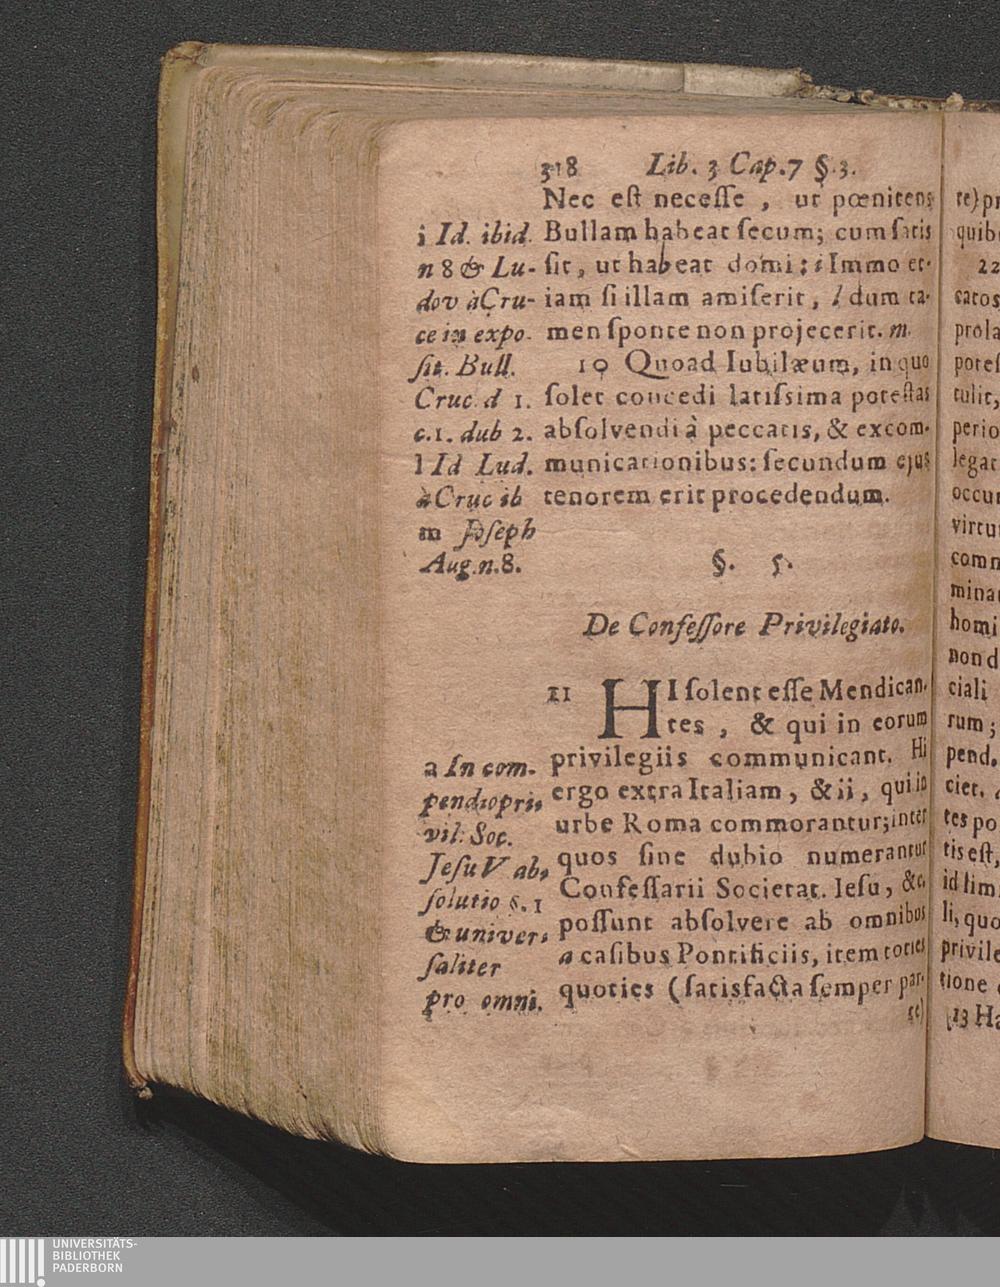 318 Lib. 3 Cap. 7 §. 3.
Nec eſt neceſſe , ut pœnitens
Bullam habeat ſecum; cum ſatis
ſit, ut habeat domi; i Immo et-
iam ſi illam amiſerit, l dum ta-
men ſponte non projecerit. m
10 Quoad Iubilæum, in quo
ſolet concedi latiſsima poteſtas
abſolvendi à peccatis, & excom-
municationibus: ſecundum ejus
tenorem erit procedendum.
i Id. ibid.
n 8 & Lu-
dov à Cru-
ce in expo-
ſit. Bull.
Cruc. d 1.
c. 1. dub 2.
l Id Lud.
à Cruc ib
m Joſeph
Aug. n. 8.
§. 5.
De Confeſſore Privilegiato.
11 HI ſolent eſſe Mendican-
tes , & qui in eorum
privilegiis communicant. Hi
ergo extra Italiam, & ii, qui in
urbe Roma commorantur; inter
quos ſine dubio numerantur
Confeſſarii Societat. Ieſu, &c.
poſſunt abſolvere ab omnibus
a caſibus Pontificiis, item toties
quoties (ſatisfacta ſemper par-
te)
a In com-
pendio pri-
vil. Soc.
Jeſu V ab-
ſolutio §. 1
& univer-
ſaliter
pro omni.
te) pr
quib
22
catos
prola
poteſ
tulit,
perio
legat
occur
virtu
comm
minat
homi
non d
ciali
rum;
pend.
ciet.
tes po
tis eſt,
id lim
li, quo
privile
tione
13 Ha
UNIVERSITÄTS-
BIBLIOTHEK
PADERBORN